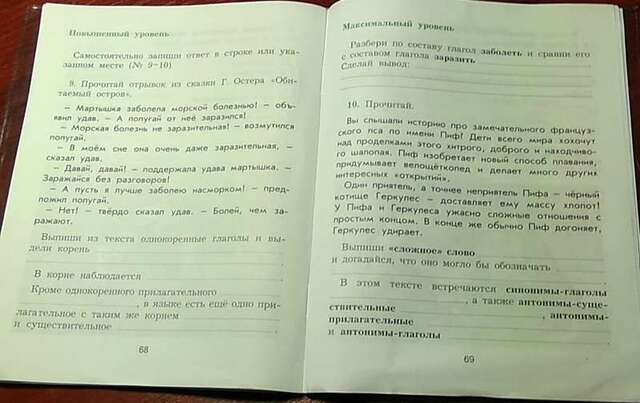 Повышенный уровень
Самостоятельно запиши ответ в строке или ука-
занном месте (№ 9–10)
9. Прочитай отрывок из сказки Г. Остера «Оби-
таемый остров».
– Мартышка заболела морской болезнью! – объ-
явил удав. – А попугай от неё заразился!
– Морская болезнь не заразительная! – возмутился
попугай.
– В моём сне она очень даже заразительная, –
сказал удав.
– Давай, давай! – поддержала удава мартышка. –
Заражайся без разговоров!
– А пусть я лучше заболею насморком! – пред-
ложил попугай.
– Нет! – твёрдо сказал удав. – Болей, чем за-
ражают.
Выпиши из текста однокоренные глаголы и вы-
дели корень
В корне наблюдается
Кроме однокоренного прилагательного
, в языке есть ещё одно при-
лагательное с таким же корнем
и существительное
68
Максимальный уровень
Разбери по составу глагол заболеть и сравни его
с составом глагола заразить
Сделай вывод:
10. Прочитай.
Вы слышали историю про замечательного француз-
ского пса по имени Пиф! Дети всего мира хохочут
над проделками этого хитрого, доброго и находчиво-
го шалопая. Пиф изобретает новый способ плавания,
придумывает велощёткопед и делает много других
интересных «открытий».
Один приятель, а точнее неприятель Пифа – чёрный
котище Геркулес – доставляет ему массу хлопот!
У Пифа и Геркулеса ужасно сложные отношения с
простым концом. В конце же обычно Пиф догоняет,
Геркулес удирает.
Выпиши «сложное» слово
и догадайся, что оно могло бы обозначать .
В этом тексте встречаются синонимы-глаголы
, а также антонимы-суще-
ствительные
, антонимы-
прилагательные
и антонимы-глаголы
69